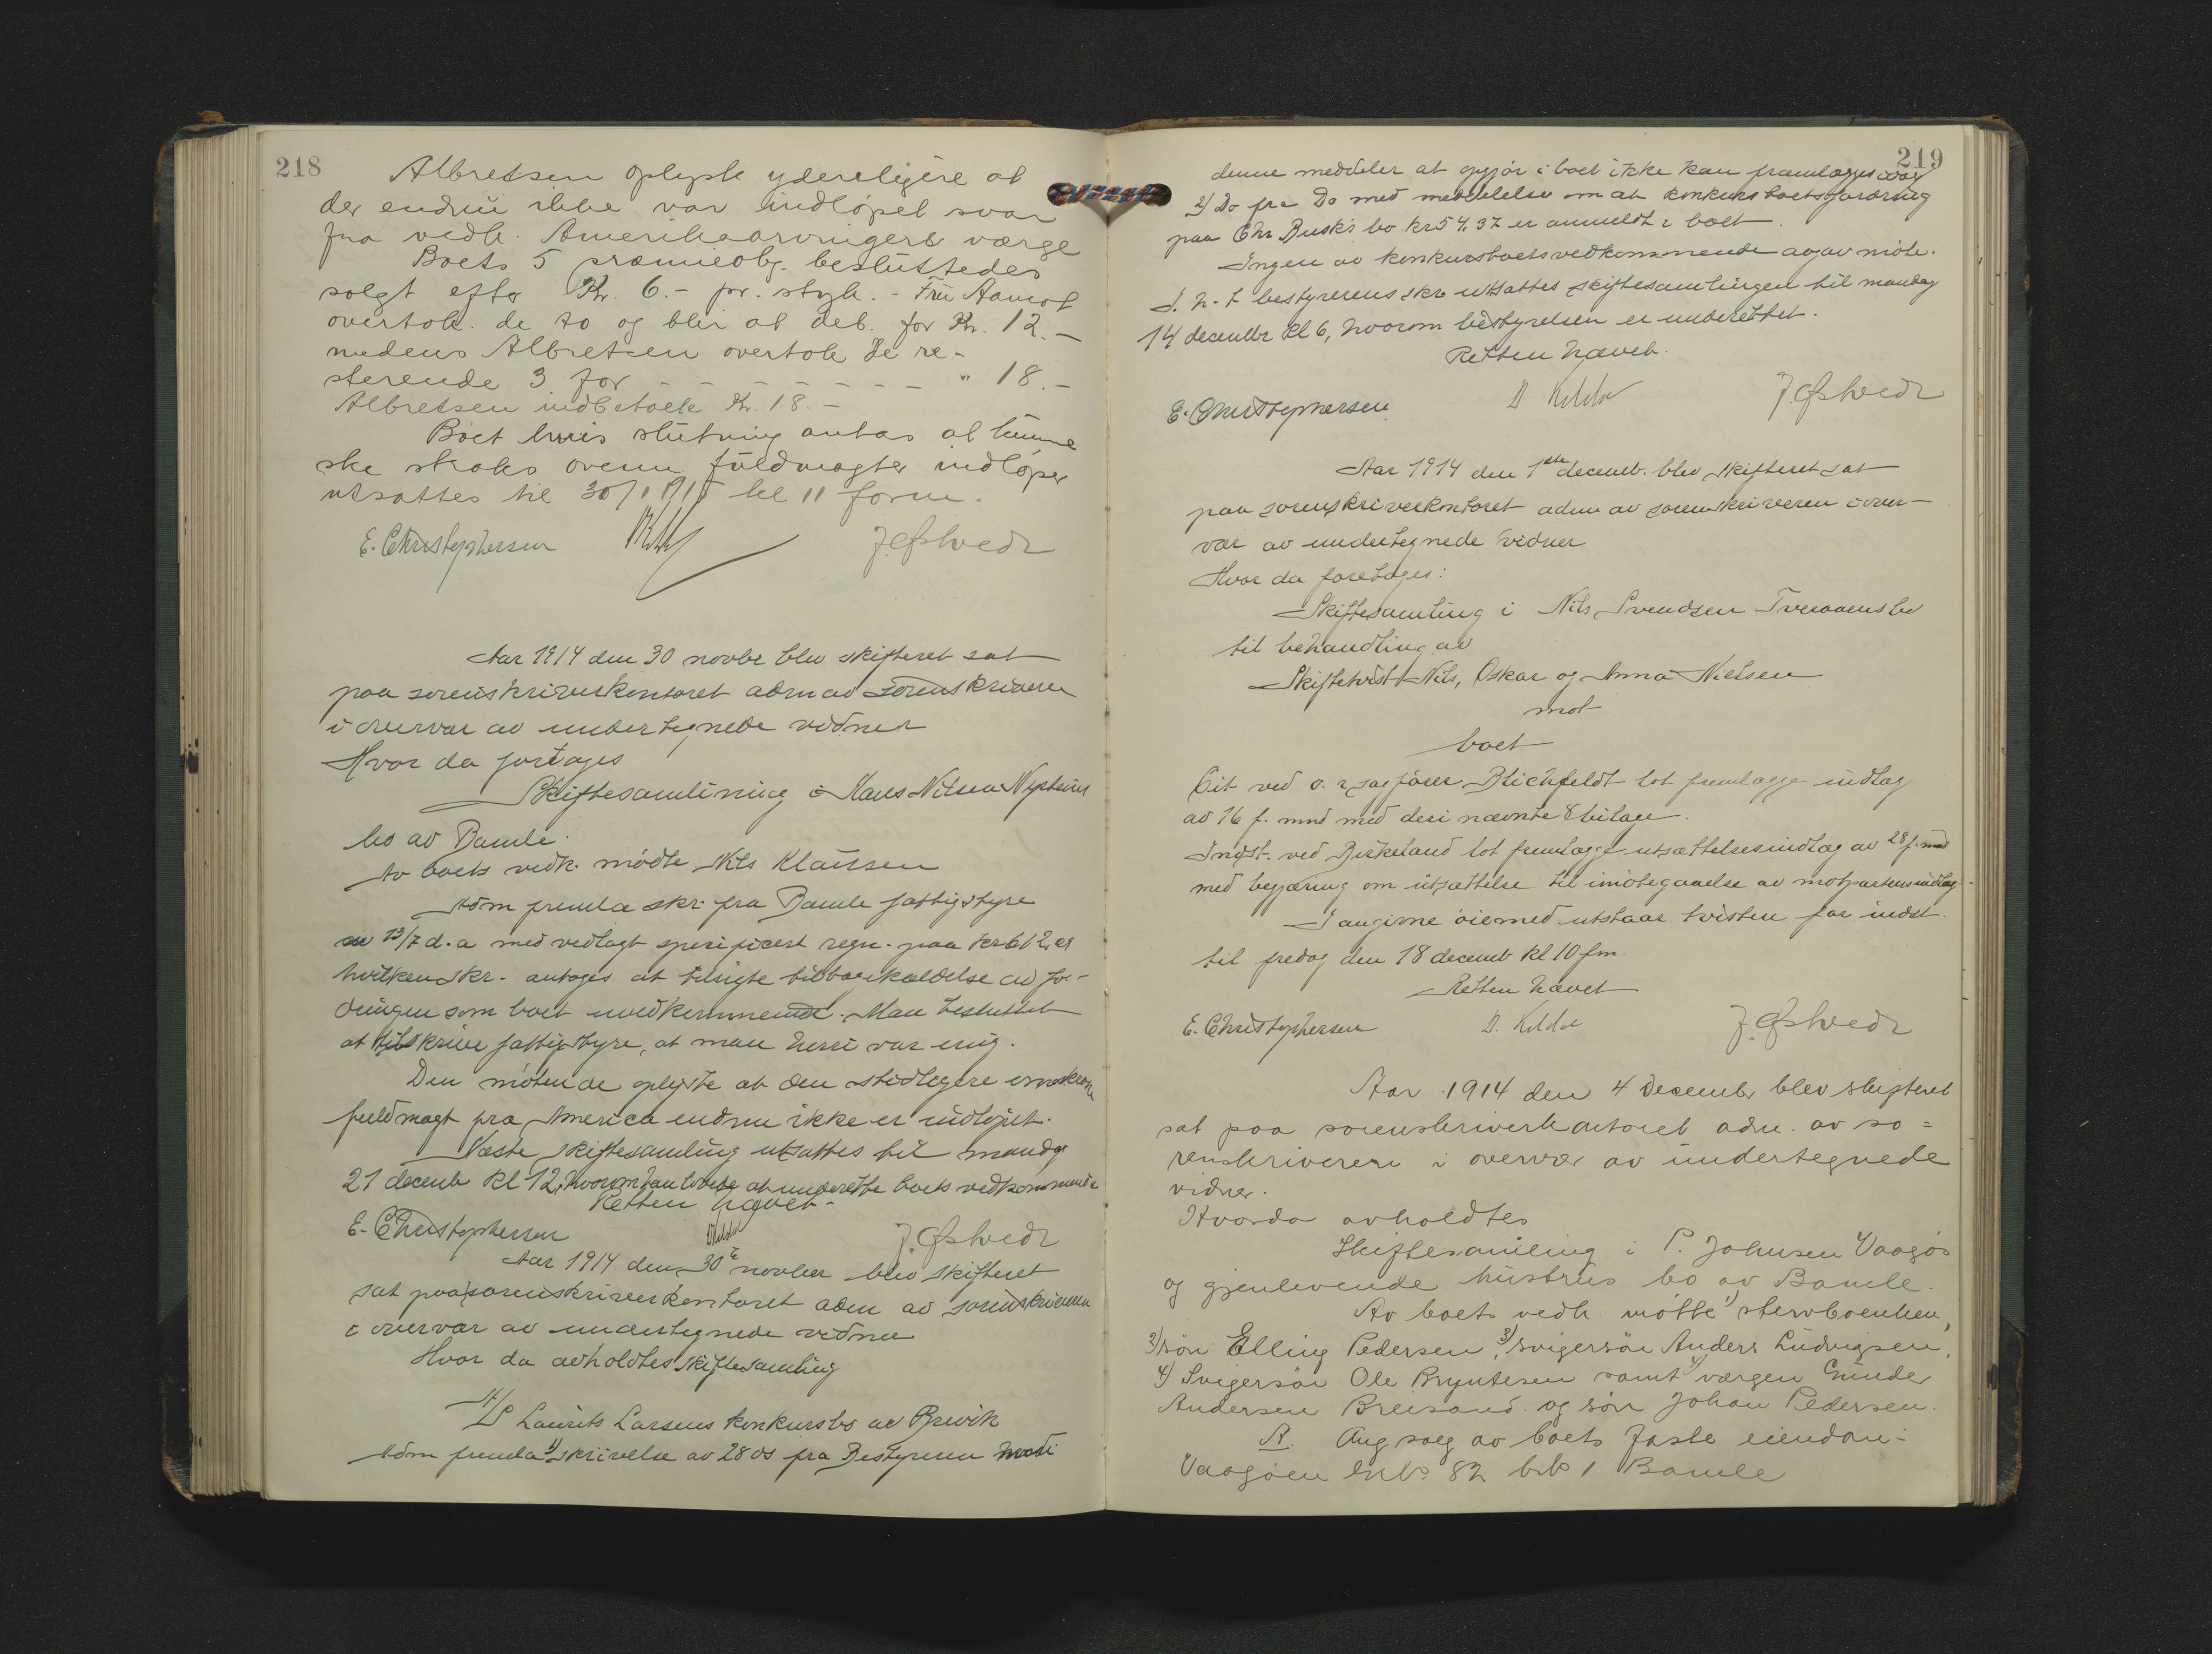 218
Albretsen oplyste ydereligere at
der endnu ikke var indløpet svar
fra vedk. Amerikaarvingers værge
Boets 5 præmieobl. besluttedes
solgt efter Kr. 6.- pr. styk. - Fru Aamot
overtok de to og blir at deb. for Kr. 12.-
medens Albretsen overtok de re-
sterende 3 for - - - - - - - - " 18.-
Albretsen indbetalte Kr. 18.-
Boet hvis slutning antas at kunne
ske straks ovenn. fuldmagter indløper
utsattes til 30/1 1915 kl 11 form.
E. Christophersen J. Østvedt
Aar 1914 den 30 novbr blev skifteret sat
paa sorenskriverkontoret adm av sorenskriveren
i overvær av undertegnede vidner
Hvor da foretages
Skiftesamlining i Hans Nilsen Nysteins
bo av Bamle.
Av boets vedk. mødte Nils Klausen
Adm fremla skr. fra Bamle fattigstyre
av 13/7 d.a med vedlagt specificert regn. paa kr
hvilken skr. antages at tilsigte tilbakekaldelse av for-
dringen som boet uvedkommende. Man besluttet
at tilskrive fattigstyre, at man heri var enig.
Den møtende oplyste at den stedligere
fuldmagt fra America endnu ikke er indløpet.
Næste skiftesamling utsattes til mandag
21 decemb kl 12, hvorom han lovede at underrette boets vedkommende
Retten hævet.
E. Christophersen D Kildal J. Østvedt
Aar 1914 den 30te novber blev skifteret
sat paa sorenskriverkontoret adm av sorenskriveren
i overvær av undertegnede vidner
Hvor da avholdtes skiftesamling
A/S Laurits Larsens konkursbo av Brevik
Adm fremla 1) skrivelse av 28 ds fra Bestyreren hvori
219
denne meddeler at opgjør i boet ikke kan framlægges idag
2) Do fra Do med meddelelse om at konkursboets fordring
paa Chr Busk's bo kr 54,37 er anmeldt i boet.
Ingen av konkursboets vedkommende avgav møte.
I. h. t bestyrerens skr utsattes skiftesamlingen til mandag
14 decembr kl 6, hvorom bestyrelsen er underrettet.
Retten hævet.
E. Christophersen D Kildal J. Østvedt
Aar 1914 den 1ste decemb. blev skifteret sat
paa sorenskriverkontoret adm av sorenskriveren i over-
vær av undertegnede vidner
Hvor da foretages:
Skiftesamling i Nils Svendsen Tveraaens bo
til behandling av
Skiftetvist Nils, Oskar og Anna Nielsen
mot
boet
Cit ved o.r.sagfører Blichfeldt lot fremlægge indlæg
av 16 f. mnd med deri nævnte 8 bilage.
Indst. ved Birkeland lot fremlægge utsættelsesindlæg av 28 f. mnd
med begjæring om utsættelse til imøtegaaelse av motpartens indlæg
I angivne øiemed utstaar tvisten for indst.
til fredag den 18 decemb kl 10 fm.
Retten hævet
E. Christophersen D. Kildal J. Østvedt
Aar 1914 den 4 Decembr blev skifteret
sat paa sorenskriverkontoret adm. av so=
renskriveren i overvær av undertegnede
vidner.
Hvorda avholdtes
Skiftesamling i P. Johnsen Vaagøs
og gjenlevende hustrus bo av Bamle.
Av boets vedk møtte 1) stervboenken,
2) søn Elling Pedersen, 3) svigersøn Anders Ludvigsen,
4) Svigersøn Ole Bryntesen samt 4) værgen Gunder
Andersen Breisand og søn Johan Pedersen.
A. Ang salg av boets faste eiendom:
Vaagøen Gno 82 bno 1 Bamle